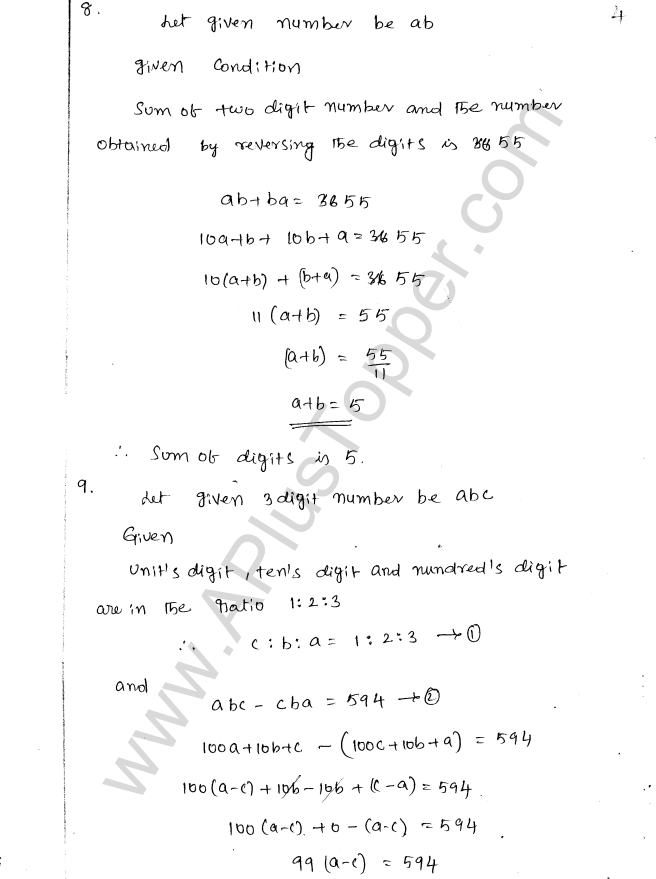 8.
4
Let given number be ab
given Condition
Sum of two digit number and the number
obtained by reversing the digits is 55
ab + ba = 55
10a + b + 10b + a = 55
10(a+b) + (b+a) = 55
11 (a+b) = 55
(a+b) = 55/11
a+b = 5
∴ Sum of digits is 5.
9.
Let given 3 digit number be abc
Given
Unit's digit, ten's digit and hundred's digit
are in the ratio 1:2:3
∴ c : b : a = 1 : 2 : 3 → ①
and
abc - cba = 594 → ②
100a + 10b + c - (100c + 10b + a) = 594
100(a-c) + 10b - 10b + (c-a) = 594
100 (a-c) + 0 - (a-c) = 594
99 (a-c) = 594
www.APlusTopper.com